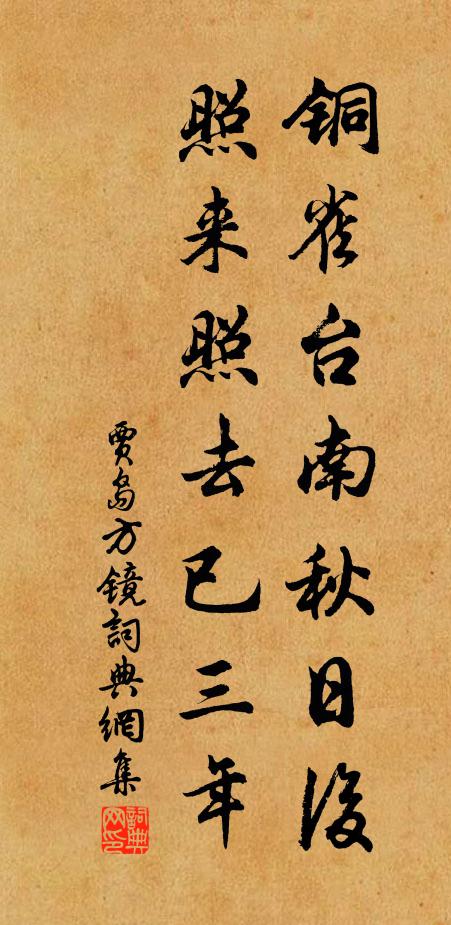 铜雀台南秋日後
照来照去已三年
賈岛方镜詞典網集
詞典
网印